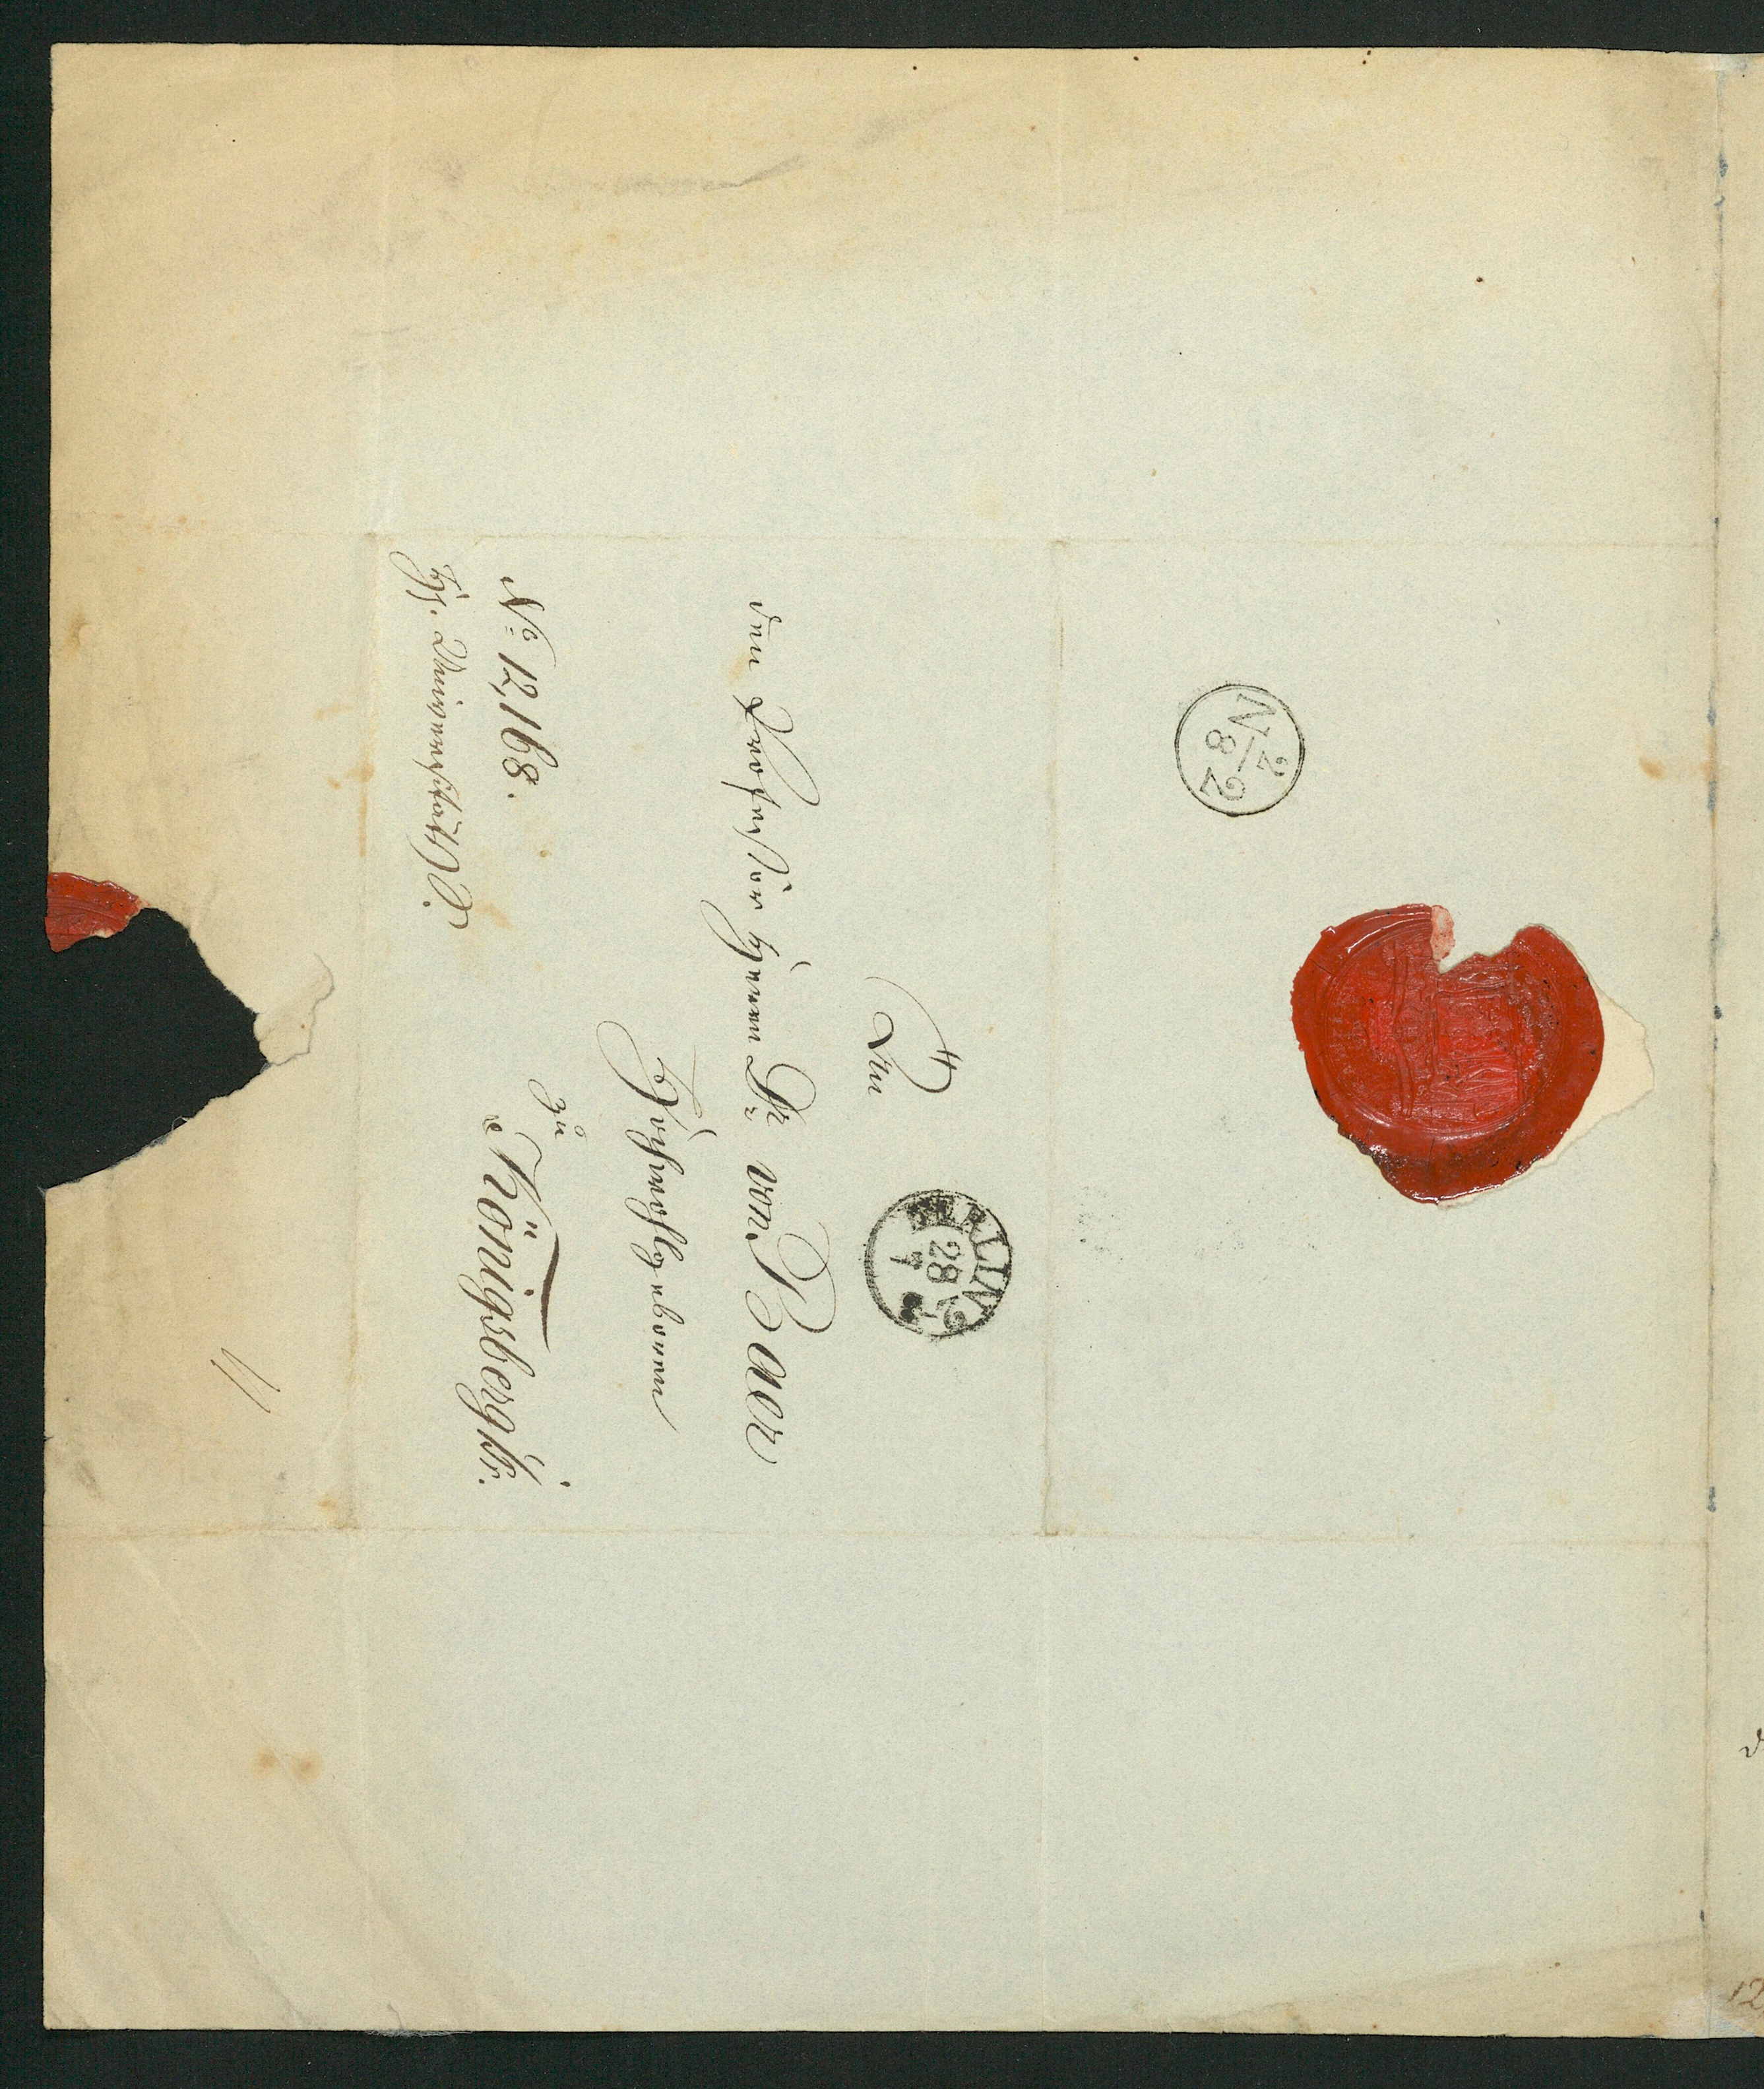 An
den Professor Herrn Dr. von Baer
Hochwohlgeboren
zu
Königsberg i/Pr.
No. 12,168.
Hf. Universitäts
BERLIN
28
N 2
2
8
12